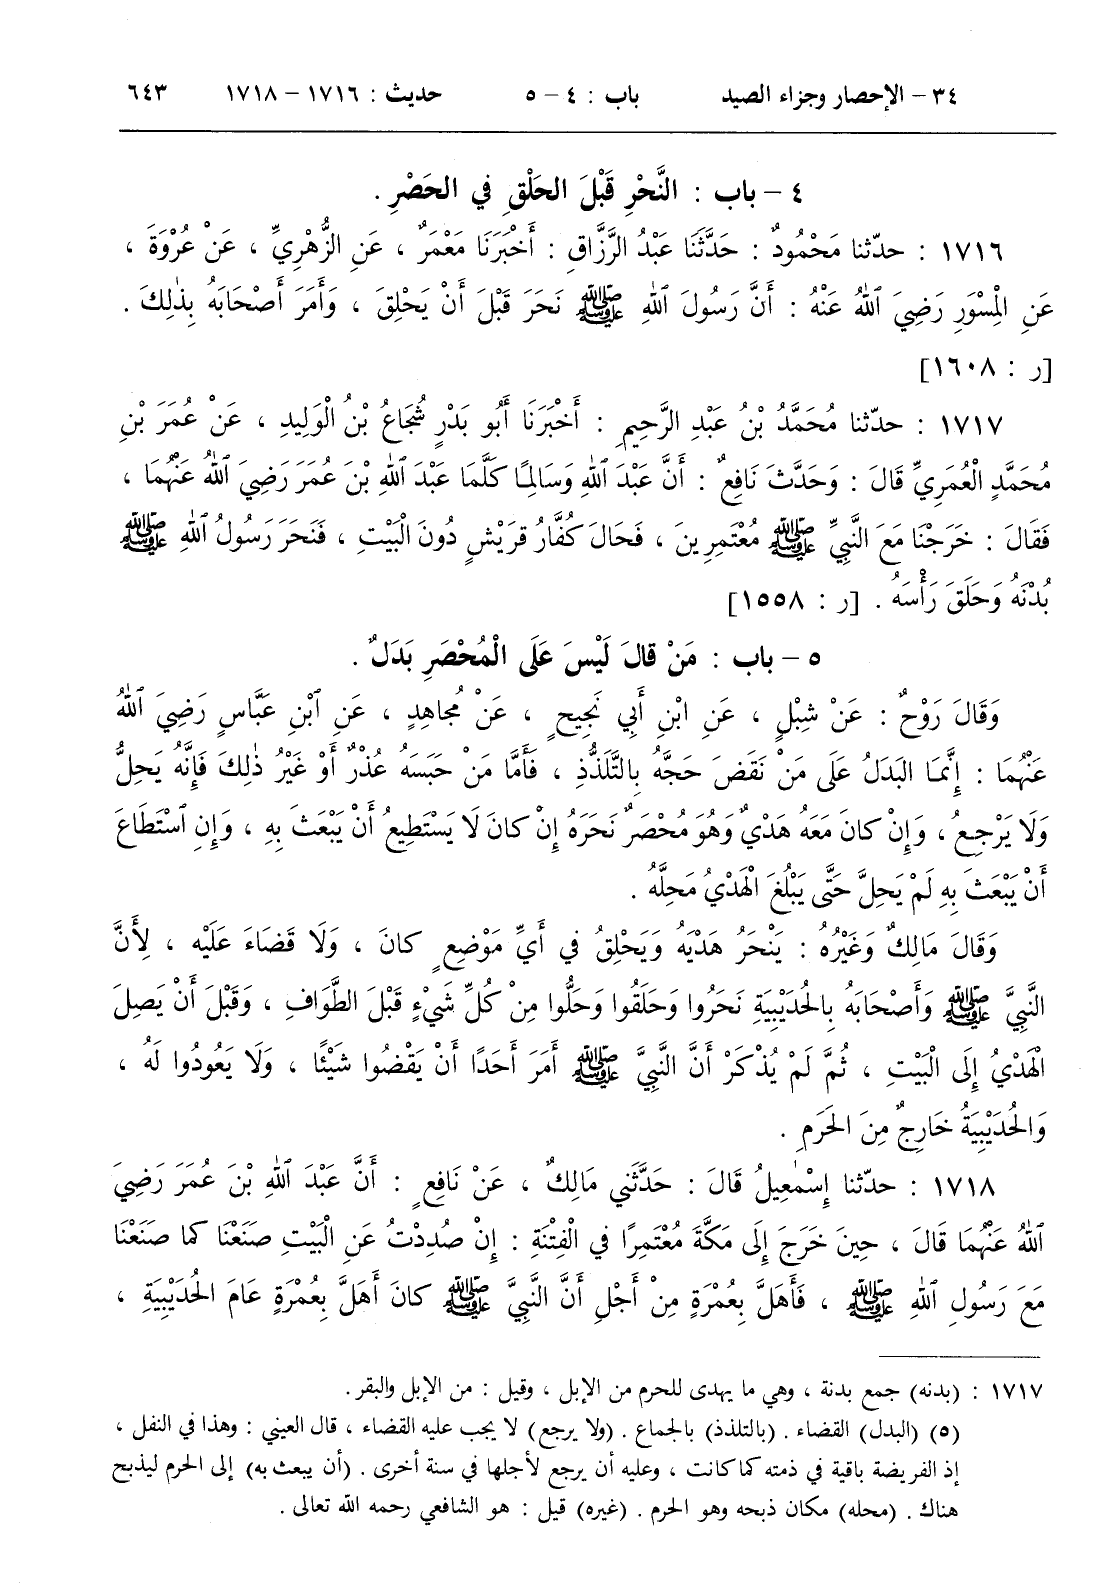 ٣٤ – الإحصار وجزاء الصيد باب : ٤ – ٥ حديث : ١٧١٦ – ١٧١٨ ٦٤٣
٤ – باب : النَّحْرِ قَبْلَ الحَلْقِ فِي الحَصْرِ .
١٧١٦ : حدّثنا مَحْمُودٌ : حَدَّثَنَا عَبْدُ الرَّزَّاقِ : أَخْبَرَنَا مَعْمَرٌ ، عَنِ الزُّهْرِيِّ ، عَنْ عُرْوَةَ ،
عَنِ الْمِسْوَرِ رَضِيَ ٱللهُ عَنْهُ : أَنَّ رَسُولَ ٱللهِ ﷺ نَحَرَ قَبْلَ أَنْ يَحْلِقَ ، وَأَمَرَ أَصْحَابَهُ بِذٰلِكَ .
[ر : ١٦٠٨]
١٧١٧ : حدّثنا مُحَمَّدُ بْنُ عَبْدِ الرَّحِيمِ : أَخْبَرَنَا أَبُو بَدْرٍ شُجَاعُ بْنُ الْوَلِيدِ ، عَنْ عُمَرَ بْنِ
مُحَمَّدٍ الْعُمَرِيِّ قَالَ : وَحَدَّثَ نَافِعٌ : أَنَّ عَبْدَ ٱللهِ وَسَالِمًا كَلَّمَا عَبْدَ ٱللهِ بْنَ عُمَرَ رَضِيَ ٱللهُ عَنْهُمَا ،
فَقَالَ : خَرَجْنَا مَعَ النَّبِيِّ ﷺ مُعْتَمِرِينَ ، فَحَالَ كُفَّارُ قُرَيْشٍ دُونَ الْبَيْتِ ، فَنَحَرَ رَسُولُ ٱللهِ ﷺ
بُدْنَهُ وَحَلَقَ رَأْسَهُ . [ر : ١٥٥٨]
٥ – باب : مَنْ قالَ لَيْسَ عَلَى الْمُحْصَرِ بَدَلٌ .
وَقَالَ رَوْحٌ : عَنْ شِبْلٍ ، عَنِ ابْنِ أَبِي نَجِيحٍ ، عَنْ مُجاهِدٍ ، عَنِ ٱبْنِ عَبَّاسٍ رَضِيَ ٱللهُ
عَنْهُمَا : إِنَّمَا البَدَلُ عَلَى مَنْ نَقَضَ حَجَّهُ بِالتَّلَذُّذِ ، فَأَمَّا مَنْ حَبَسَهُ عُذْرٌ أَوْ غَيْرُ ذٰلِكَ فَإِنَّهُ يَحِلُّ
وَلَا يَرْجِعُ ، وَإِنْ كانَ مَعَهُ هَدْيٌ وَهُوَ مُحْصَرٌ نَحَرَهُ إِنْ كانَ لَا يَسْتَطِيعُ أَنْ يَبْعَثَ بِهِ ، وَإِنِ ٱسْتَطَاعَ
أَنْ يَبْعَثَ بِهِ لَمْ يَحِلَّ حَتَّى يَبْلُغَ الْهَدْيُ مَحِلَّهُ .
وَقَالَ مَالِكٌ وَغَيْرُهُ : يَنْحَرُ هَدْيَهُ وَيَحْلِقُ فِي أَيِّ مَوْضِعٍ كانَ ، وَلَا قَضَاءَ عَلَيْهِ ، لِأَنَّ
النَّبِيَّ ﷺ وَأَصْحَابَهُ بِالحُدَيْبِيَةِ نَحَرُوا وَحَلَقُوا وَحَلُّوا مِنْ كُلِّ شَيْءٍ قَبْلَ الطَّوَافِ ، وَقَبْلَ أَنْ يَصِلَ
الْهَدْيُ إِلَى الْبَيْتِ ، ثُمَّ لَمْ يُذْكَرْ أَنَّ النَّبِيَّ ﷺ أَمَرَ أَحَدًا أَنْ يَقْضُوا شَيْئًا ، وَلَا يَعُودُوا لَهُ ،
وَالحُدَيْبِيَةُ خَارِجٌ مِنَ الحَرَمِ .
١٧١٨ : حدّثنا إِسْمٰعِيلُ قَالَ : حَدَّثَنِي مَالِكٌ ، عَنْ نَافِعٍ : أَنَّ عَبْدَ ٱللهِ بْنَ عُمَرَ رَضِيَ
ٱللهُ عَنْهُمَا قَالَ ، حِينَ خَرَجَ إِلَى مَكَّةَ مُعْتَمِرًا فِي الْفِتْنَةِ : إِنْ صُدِدْتُ عَنِ الْبَيْتِ صَنَعْنَا كما صَنَعْنَا
مَعَ رَسُولِ ٱللهِ ﷺ ، فَأَهَلَّ بِعُمْرَةٍ مِنْ أَجْلِ أَنَّ النَّبِيَّ ﷺ كانَ أَهَلَّ بِعُمْرَةٍ عَامَ الحُدَيْبِيَةِ ،
١٧١٧ : (بدنه) جمع بدنة ، وهي ما يهدى للحرم من الإبل ، وقيل : من الإبل والبقر .
(٥) (البدل) القضاء . (بالتلذذ) بالجماع . (ولا يرجع) لا يجب عليه القضاء ، قال العيني : وهذا في النفل ،
إذ الفريضة باقية في ذمته كما كانت ، وعليه أن يرجع لأجلها في سنة أخرى . (أن يبعث به) إلى الحرم ليذبح
هناك . (محله) مكان ذبحه وهو الحرم . (غيره) قيل : هو الشافعي رحمه الله تعالى .